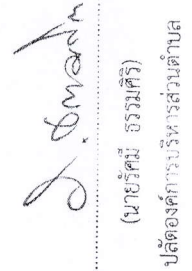 (นายรัศมี ธรรมศิริ)
ปลัดองค์การบริหารส่วนตำบล